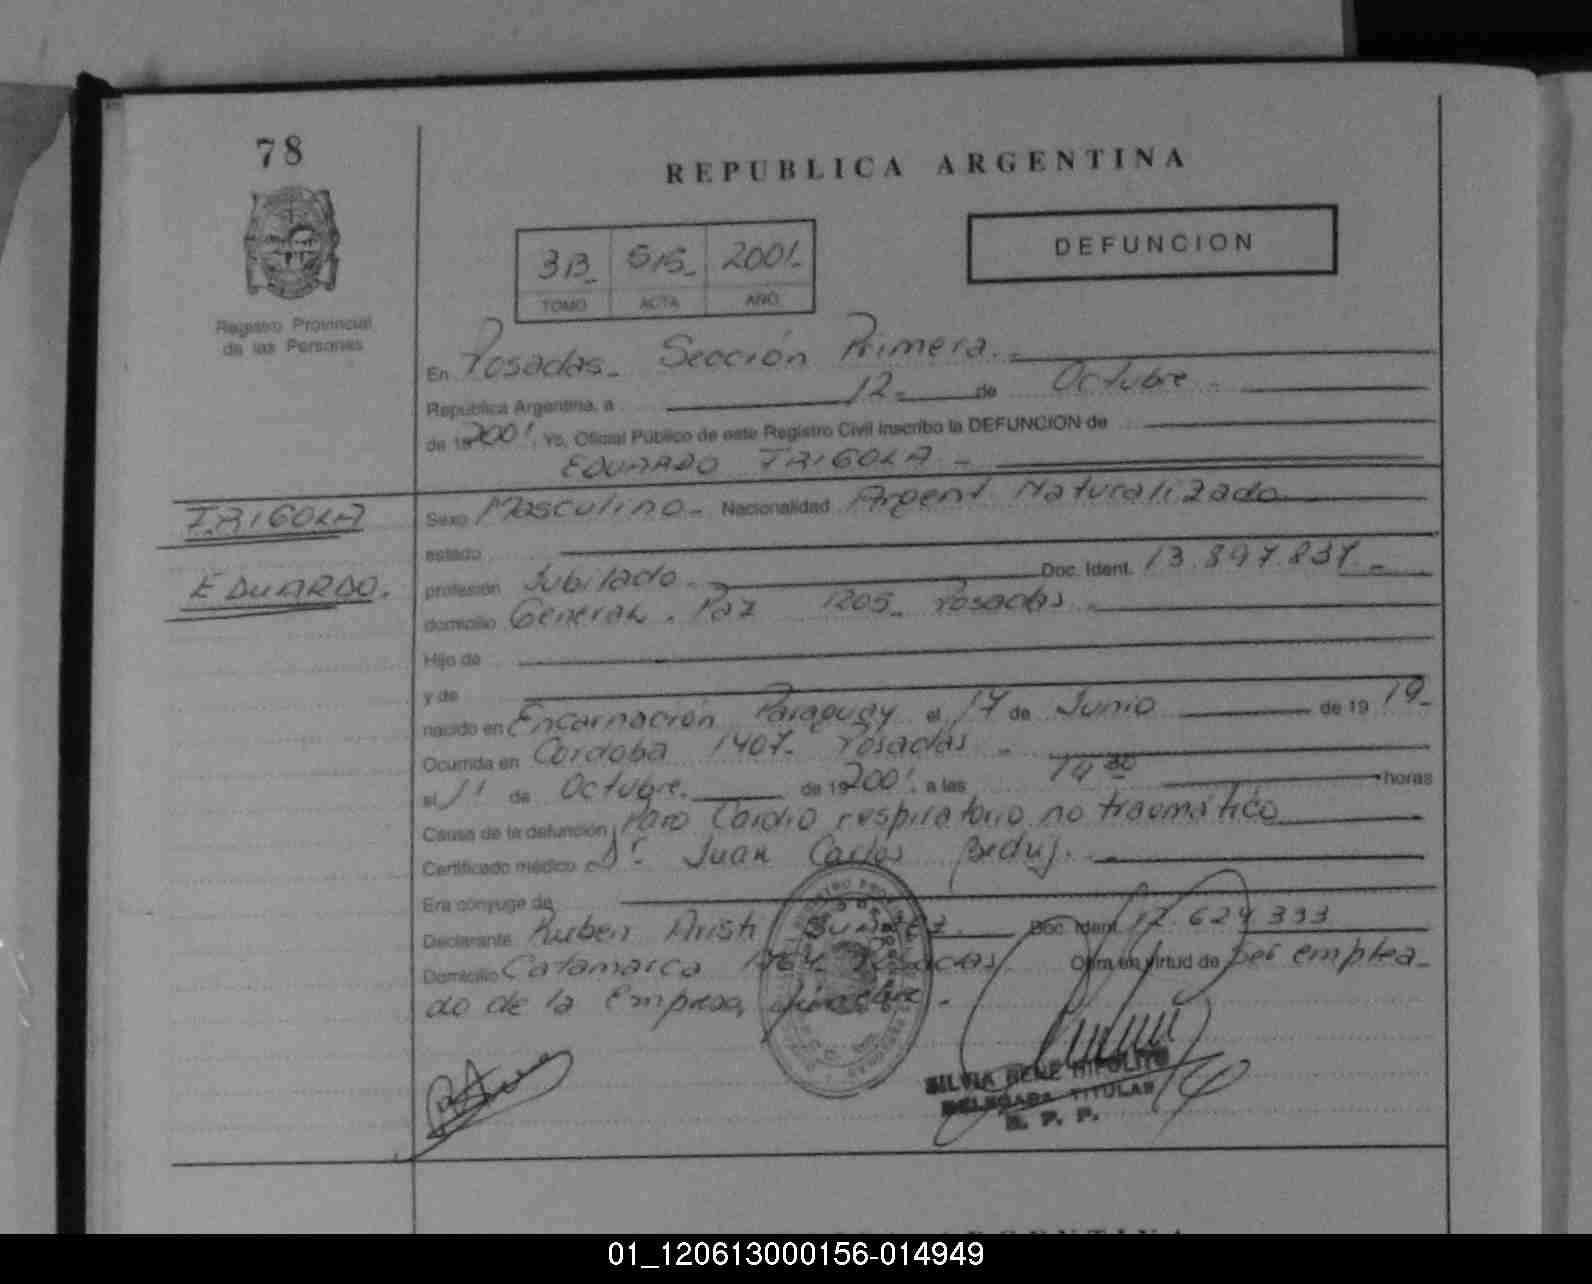 78
REPUBLICA ARGENTINA
Registro Provincial
de las Personas
3B 515 2001
TOMO ACTA AÑO
DEFUNCION
En Posadas - Sección Primera.
República Argentina, a 12 - de Octubre -
de 19 2001. Yo, Oficial Público de este Registro Civil inscribo la DEFUNCION de
EDUARDO TRIGOLA -
TRIGOLA
EDUARDO.
Sexo Masculino - Nacionalidad Argent. Naturalizado
estado
profesión Jubilado - Doc. Ident. 13.897.837 -
domicilio General Paz 1205 - Posadas -
Hijo de
y de
nacido en Encarnación Paraguay el 17 de Junio de 19 19 -
Ocurrida en Córdoba 1407 - Posadas -
el 11 de Octubre. de 19 2001. a las 14 30 horas
Causa de la defunción Paro Cardio respiratorio no traumático
Certificado médico Dr. Juan Carlos
Era cónyuge de
Declarante Ruben Doc. Ident. 12.624.333
Domicilio Catamarca Posadas Obra en virtud de ser emplea-
do de la Empresa fúnebre -
SILVIA RENE HIPOLITO
DELEGADA TITULAR
R. P. P.
01_120613000156-014949